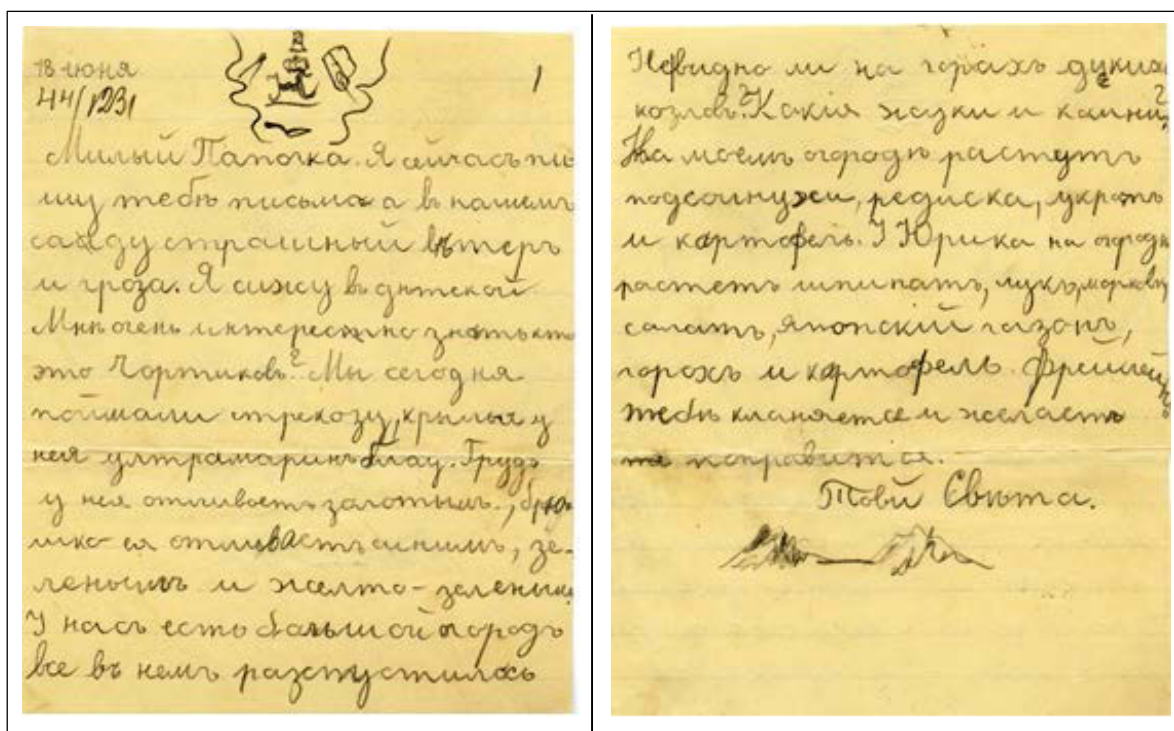 18 июня
44/1231
1
Милый Папочка. Я сейчасъ пи
шу тебѣ письмо а въ нашемъ
саду страшный вѣтеръ
и гроза. Я сижу въ дѣтской
Мнѣ очень интересно знать кто
это Чортиковъ? Мы сегодня
поймали стрекозу, крылья у
нея ултрамаринъ блау. Грудь
у нея отливаетъ залотымъ, брю
шко ея отливаетъ синимъ, зе-
ленымъ и желто-зеленымъ
У насъ есть большой огородъ
все въ немъ разспустилось
Невидно ли на горахъ дикихъ
козловъ? Какія жуки и камни?
На моемъ огородѣ растутъ
подсолнухи, редиска, укропъ
и картофель. У Юрика на огородѣ
растетъ шпинатъ, лукъ, морковь
салатъ, японскій газонъ,
горохъ и картофель. Фрейлейнъ
тебѣ кланяется и желаетъ
поправится.
Твой Свѣта.